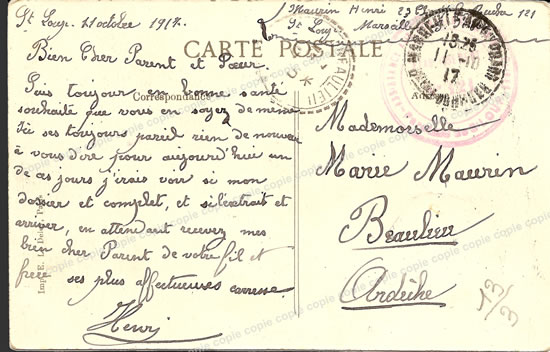 St Loup 11 octobre 1917.
Maurin Henri 121
St Loup Marseille
CARTE POSTALE
Bien Cher Parent et Sœur.
Suis toujour en bonne santé
Correspondance
souhaite que vous en soyez de même
Ici ses toujours pareil rien de nouveau
à vous dire pour aujourd'hui un
de ces jours j'irais voir si mon
dossier et complet, et si l'extrait et
arriver, en attendant recevez mes
bien cher Parent de votre fil et
frère ses plus affectueuses caresse
Henri
Mademoiselle
Marie Maurin
Beaulieu
Ardèche
13/3
BEAULIEU
MARSEILLE
13-25
11-10
17
Imp. E. Le Deley, Paris
copie copie copie copie